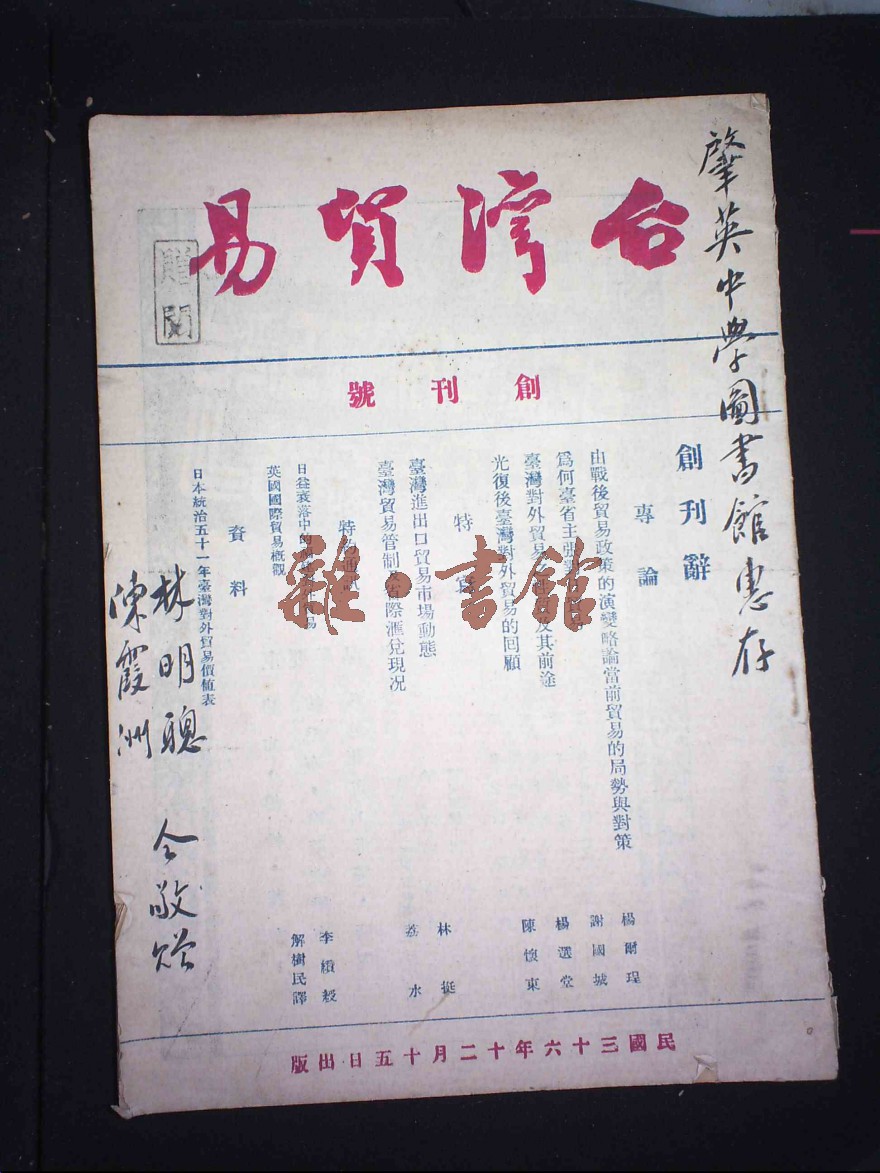 台灣貿易
贈閱
創刊號
肇英中學圖書館惠存
創刊辭
專論
由戰後貿易政策的演變略論當前貿易的局勢與對策 楊爾瑆
為何臺省主張 謝國城
臺灣對外貿易 及其前途 楊選堂
光復後臺灣對外貿易的回顧 陳懷東
特
臺灣進出口貿易市場動態 林挺
臺灣貿易管制及省際滙兌現況 荔水
特約
日益衰落中的 易 李績
英國國際貿易概觀 解樹民譯
資料
日本統治五十一年臺灣對外貿易價值表
林明聰
陳霞洲
仝敬贈
民國三十六年十二月十五日出版
雜·書館